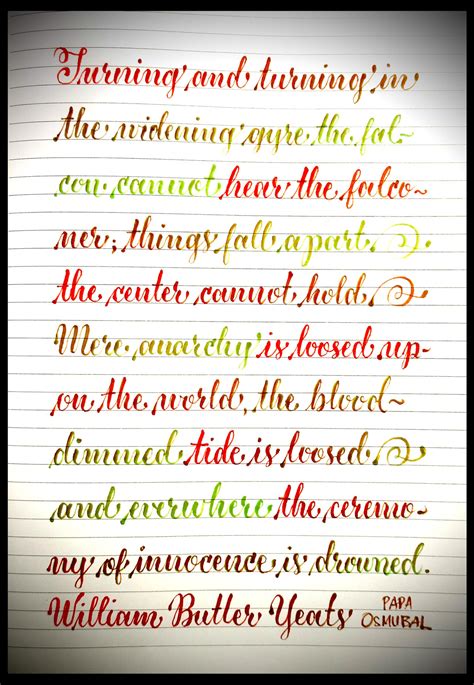 Turning and turning in
the widening gyre the fal-
con cannot hear the falco-
ner; things fall apart.
the center cannot hold
Mere anarchy is loosed up-
on the world, the blood-
dimmed tide is loosed
and everwhere the ceremo-
ny of innocence is drowned.
William Butler Yeats PAPA
OSMUBAL